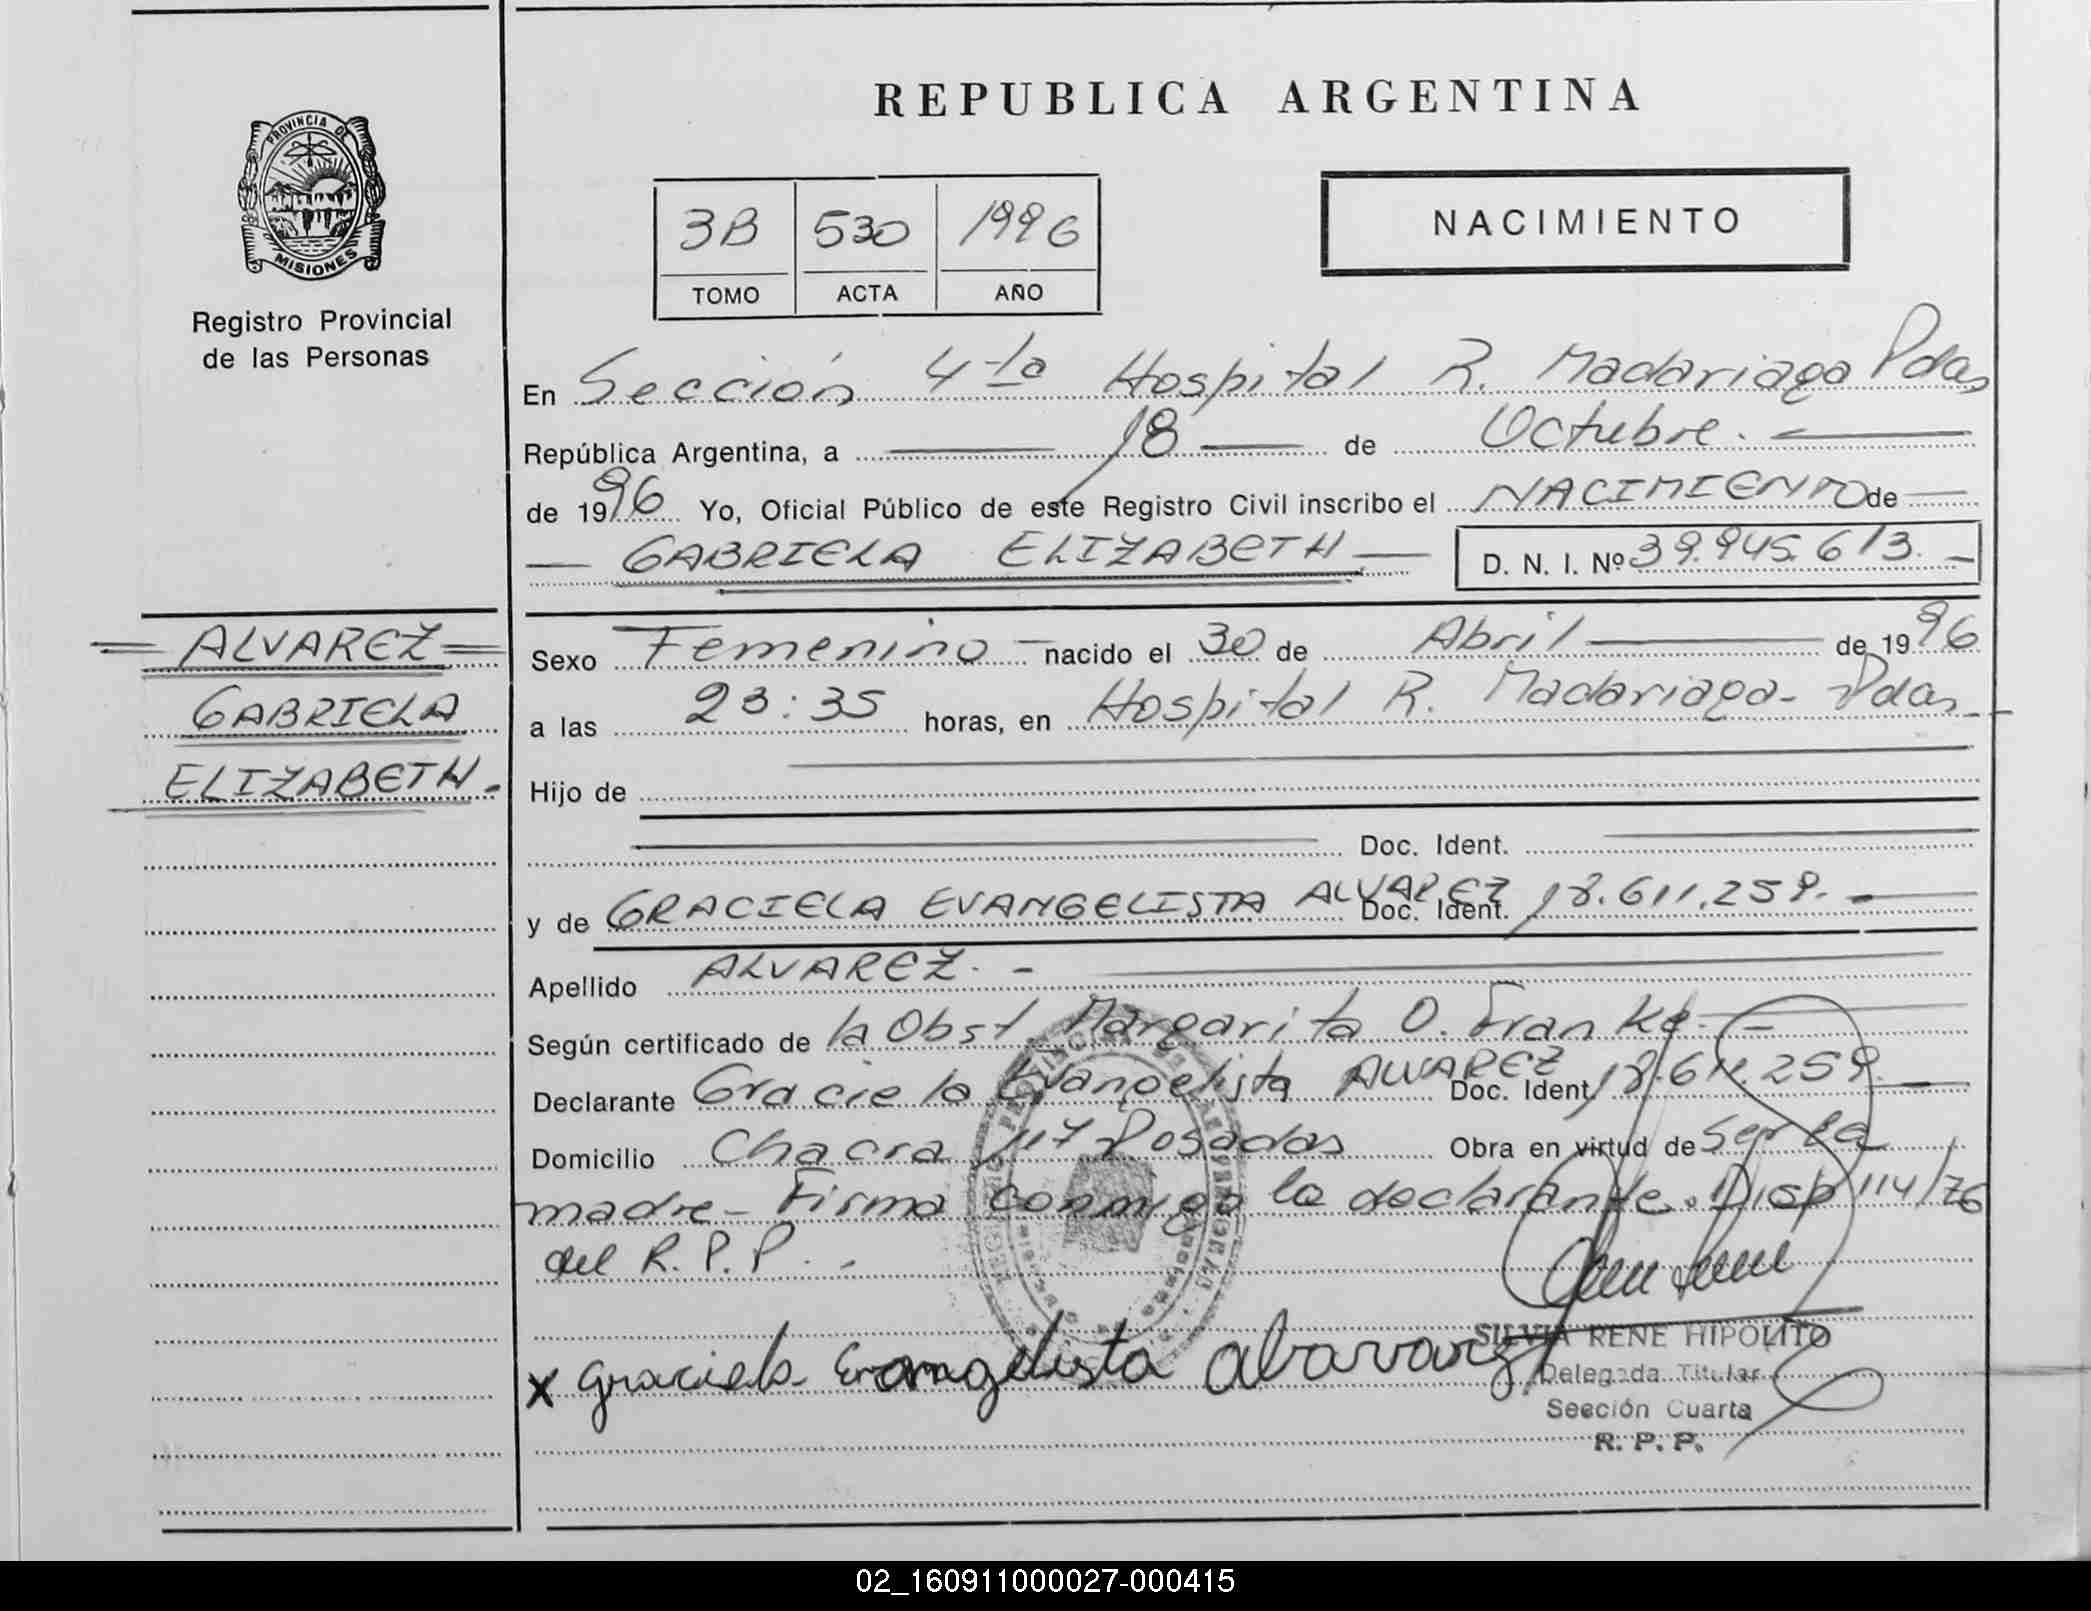 REPUBLICA ARGENTINA
PROVINCIA DE
MISIONES
Registro Provincial
de las Personas
3B 530 1996
TOMO ACTA AÑO
NACIMIENTO
En Sección 4ta Hospital R. Madariaga Pdas
República Argentina, a 18 de Octubre.
de 1996 Yo, Oficial Público de este Registro Civil inscribo el NACIMIENTO de
GABRIELA ELIZABETH D. N. I. Nº 39.945.613.
ALVAREZ
GABRIELA
ELIZABETH.
Sexo Femenino nacido el 30 de Abril de 1996
a las 23:35 horas, en Hospital R. Madariaga - Pdas
Hijo de
Doc. Ident.
y de GRACIELA EVANGELISTA ALVAREZ Doc. Ident. 18.611.259.
Apellido ALVAREZ.
Según certificado de la Obst Margarita O. Franke.
Declarante Graciela Evangelista ALVAREZ Doc. Ident. 18.611.259.
Domicilio Chacra 117 Posadas Obra en virtud de Ser la
madre - Firma conmigo la declarante. Disp 114/76
del R.P.P.
SILVIA RENE HIPOLITO
x graciela Evangelista
Delegada Titular
Sección Cuarta
R. P. P.
02_160911000027-000415